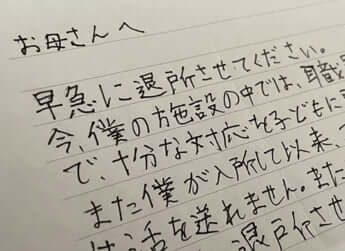 お母さんへ
早急に退所させてください。
今、僕の方施設の中では、職
で、十分な対応を子どもに
また僕が入所して以来、
生活を送れません。また
退所させ